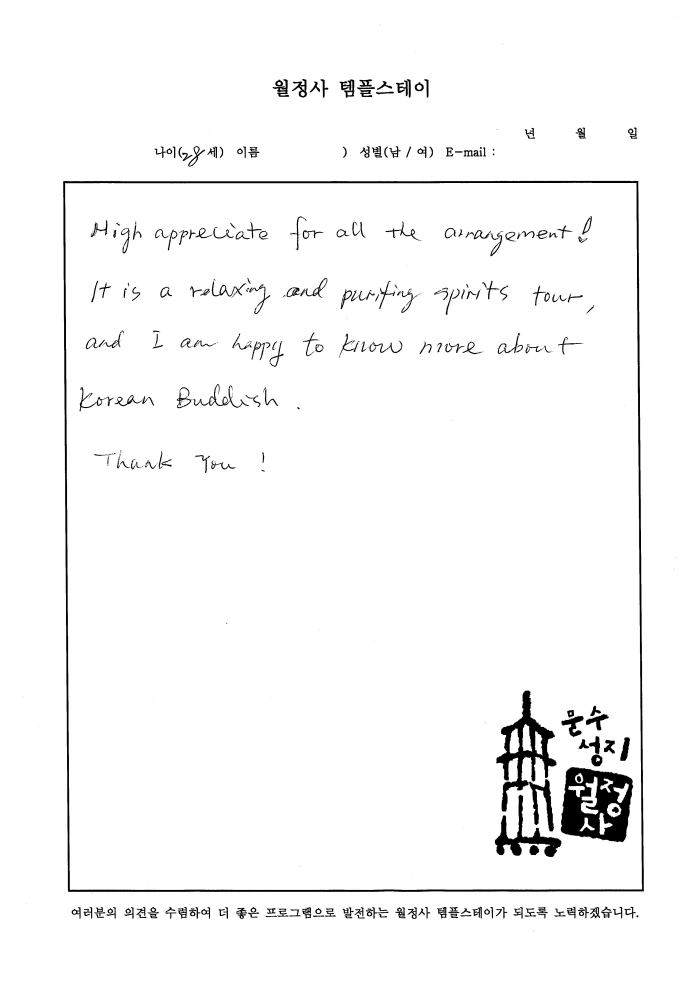 월정사 템플스테이
년 월 일
나이(28세) 이름 ) 성별(남 / 여) E-mail :
High appreciate for all the arrangement!
It is a relaxing and purifing spirits tour,
and I am happy to know more about
Korean Buddish.
Thank You !
문수
성지
월정
사
여러분의 의견을 수렴하여 더 좋은 프로그램으로 발전하는 월정사 템플스테이가 되도록 노력하겠습니다.